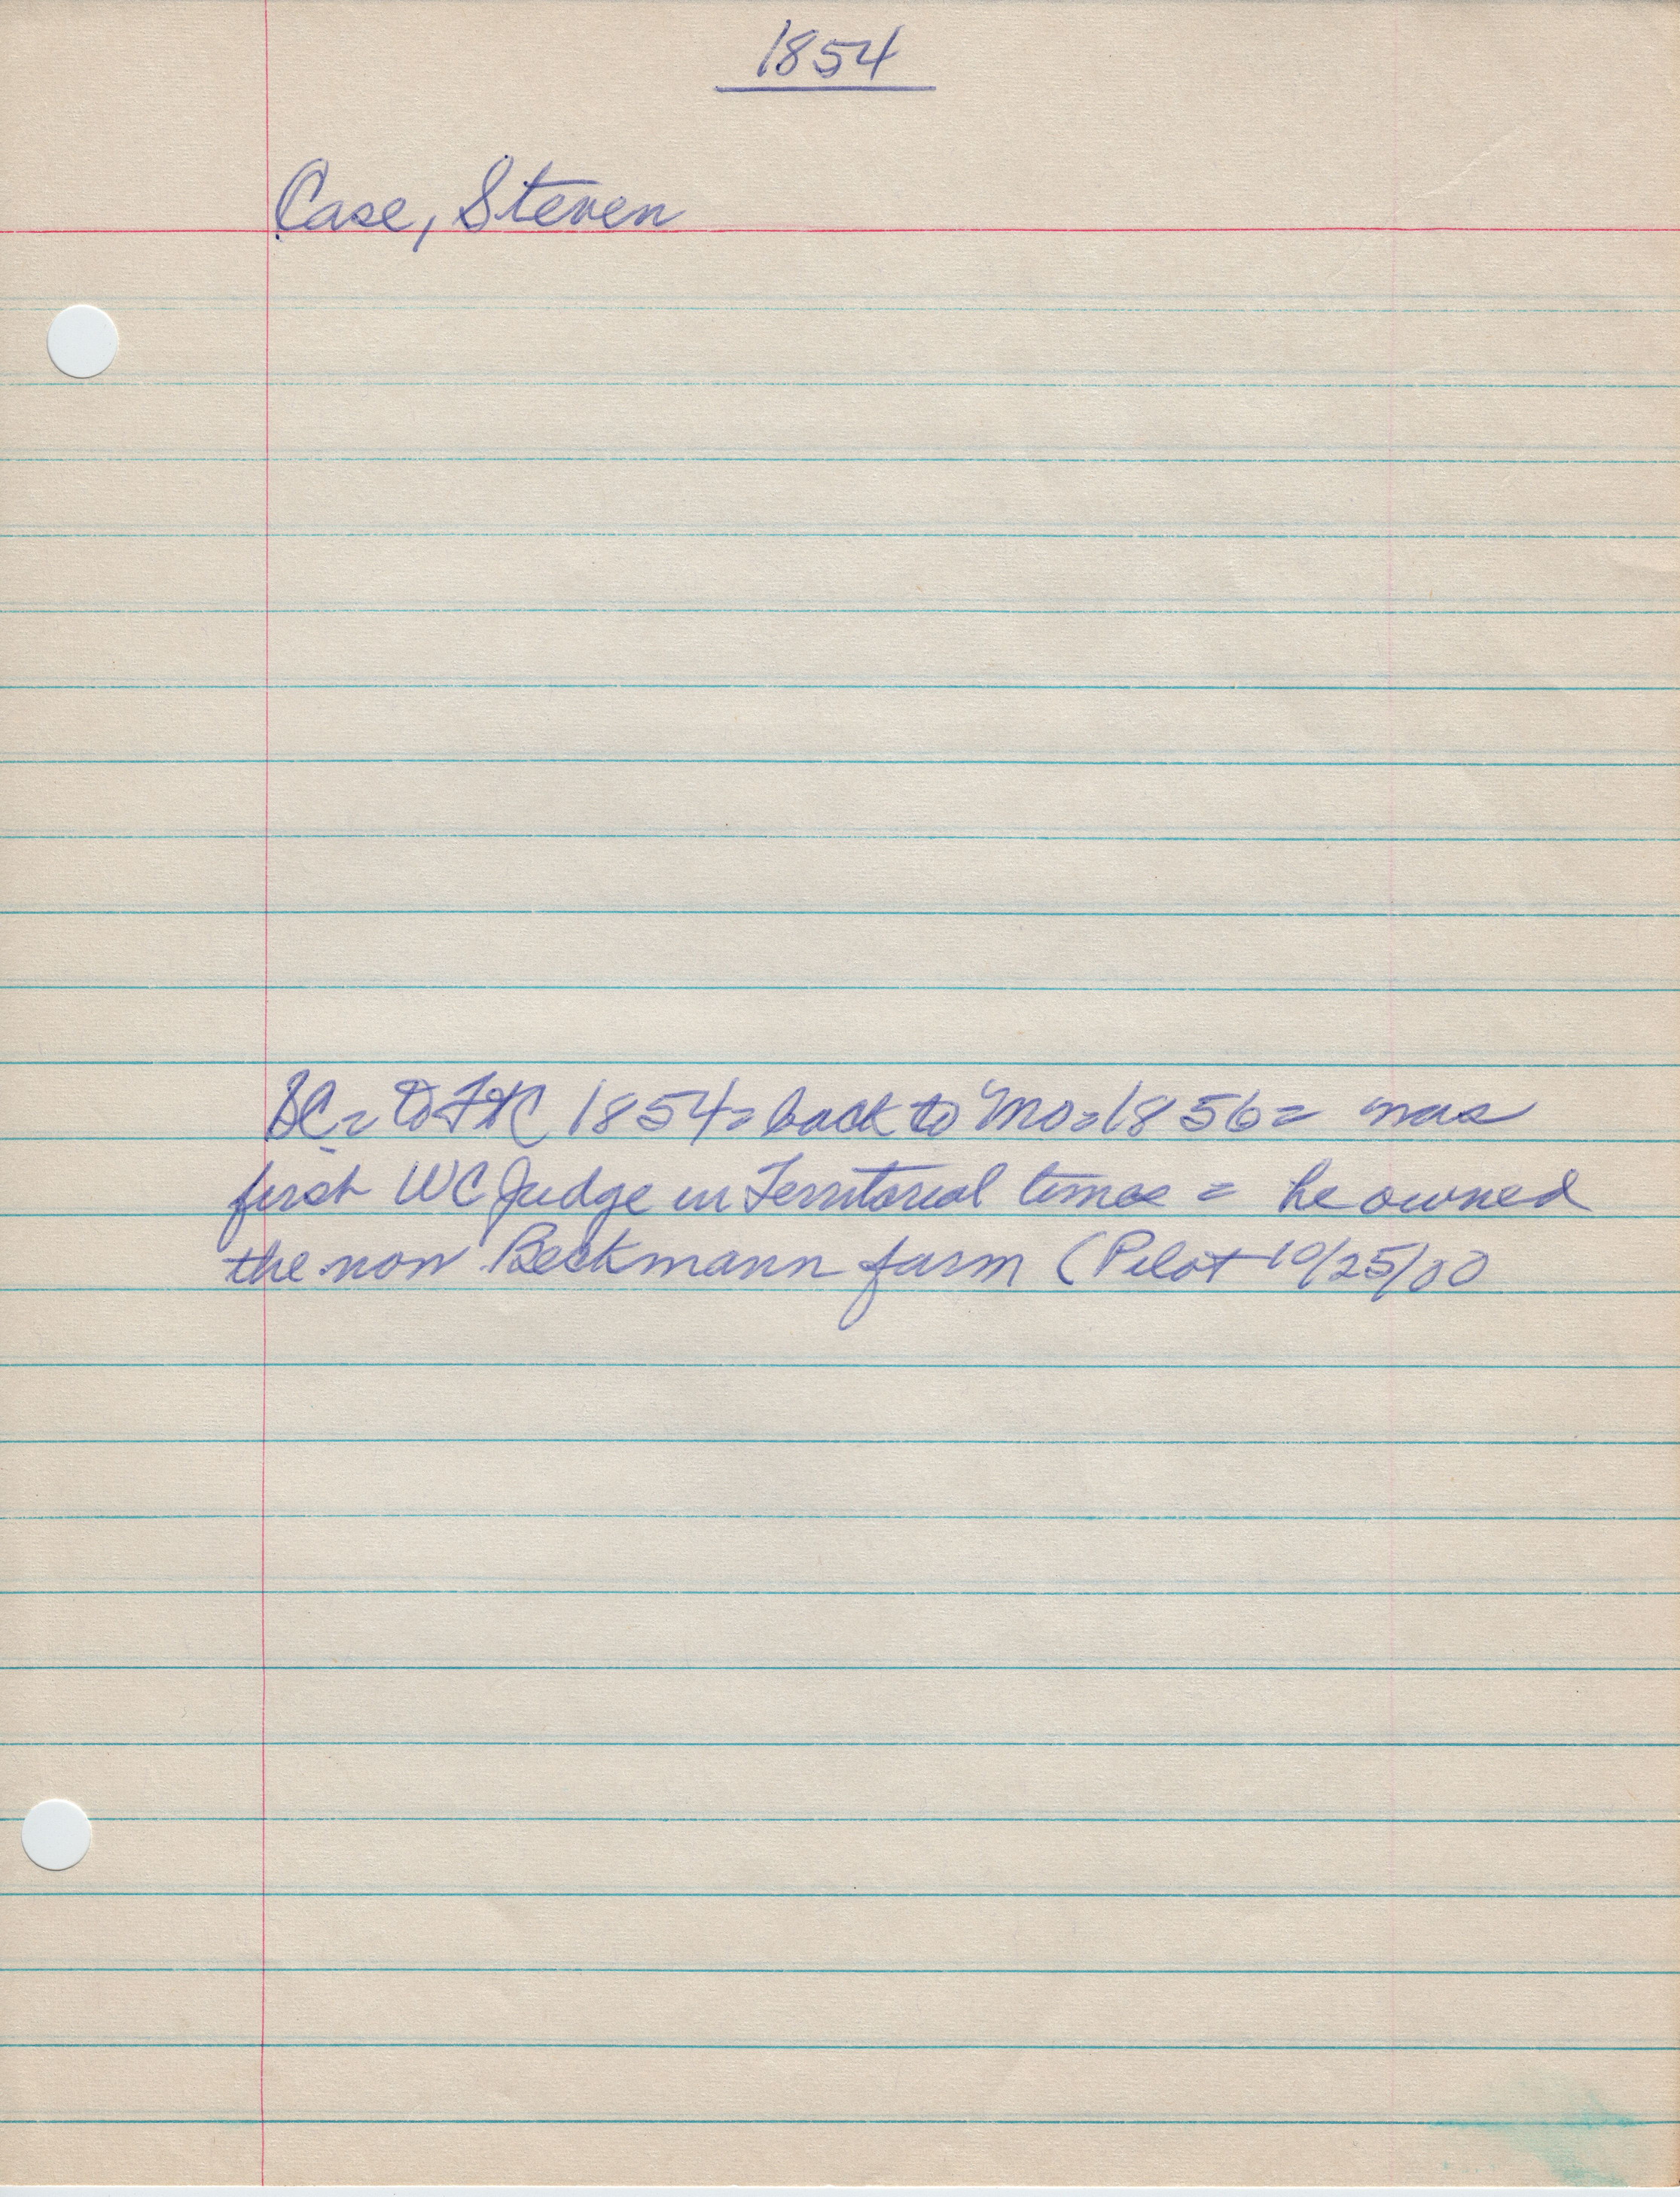 1854
Case, Steven
SC = to FtC 1854 = back to Mo = 1856 = was
first WC Judge in Territorial times = he owned
the now Beckmann farm (Pilot 10/25/00